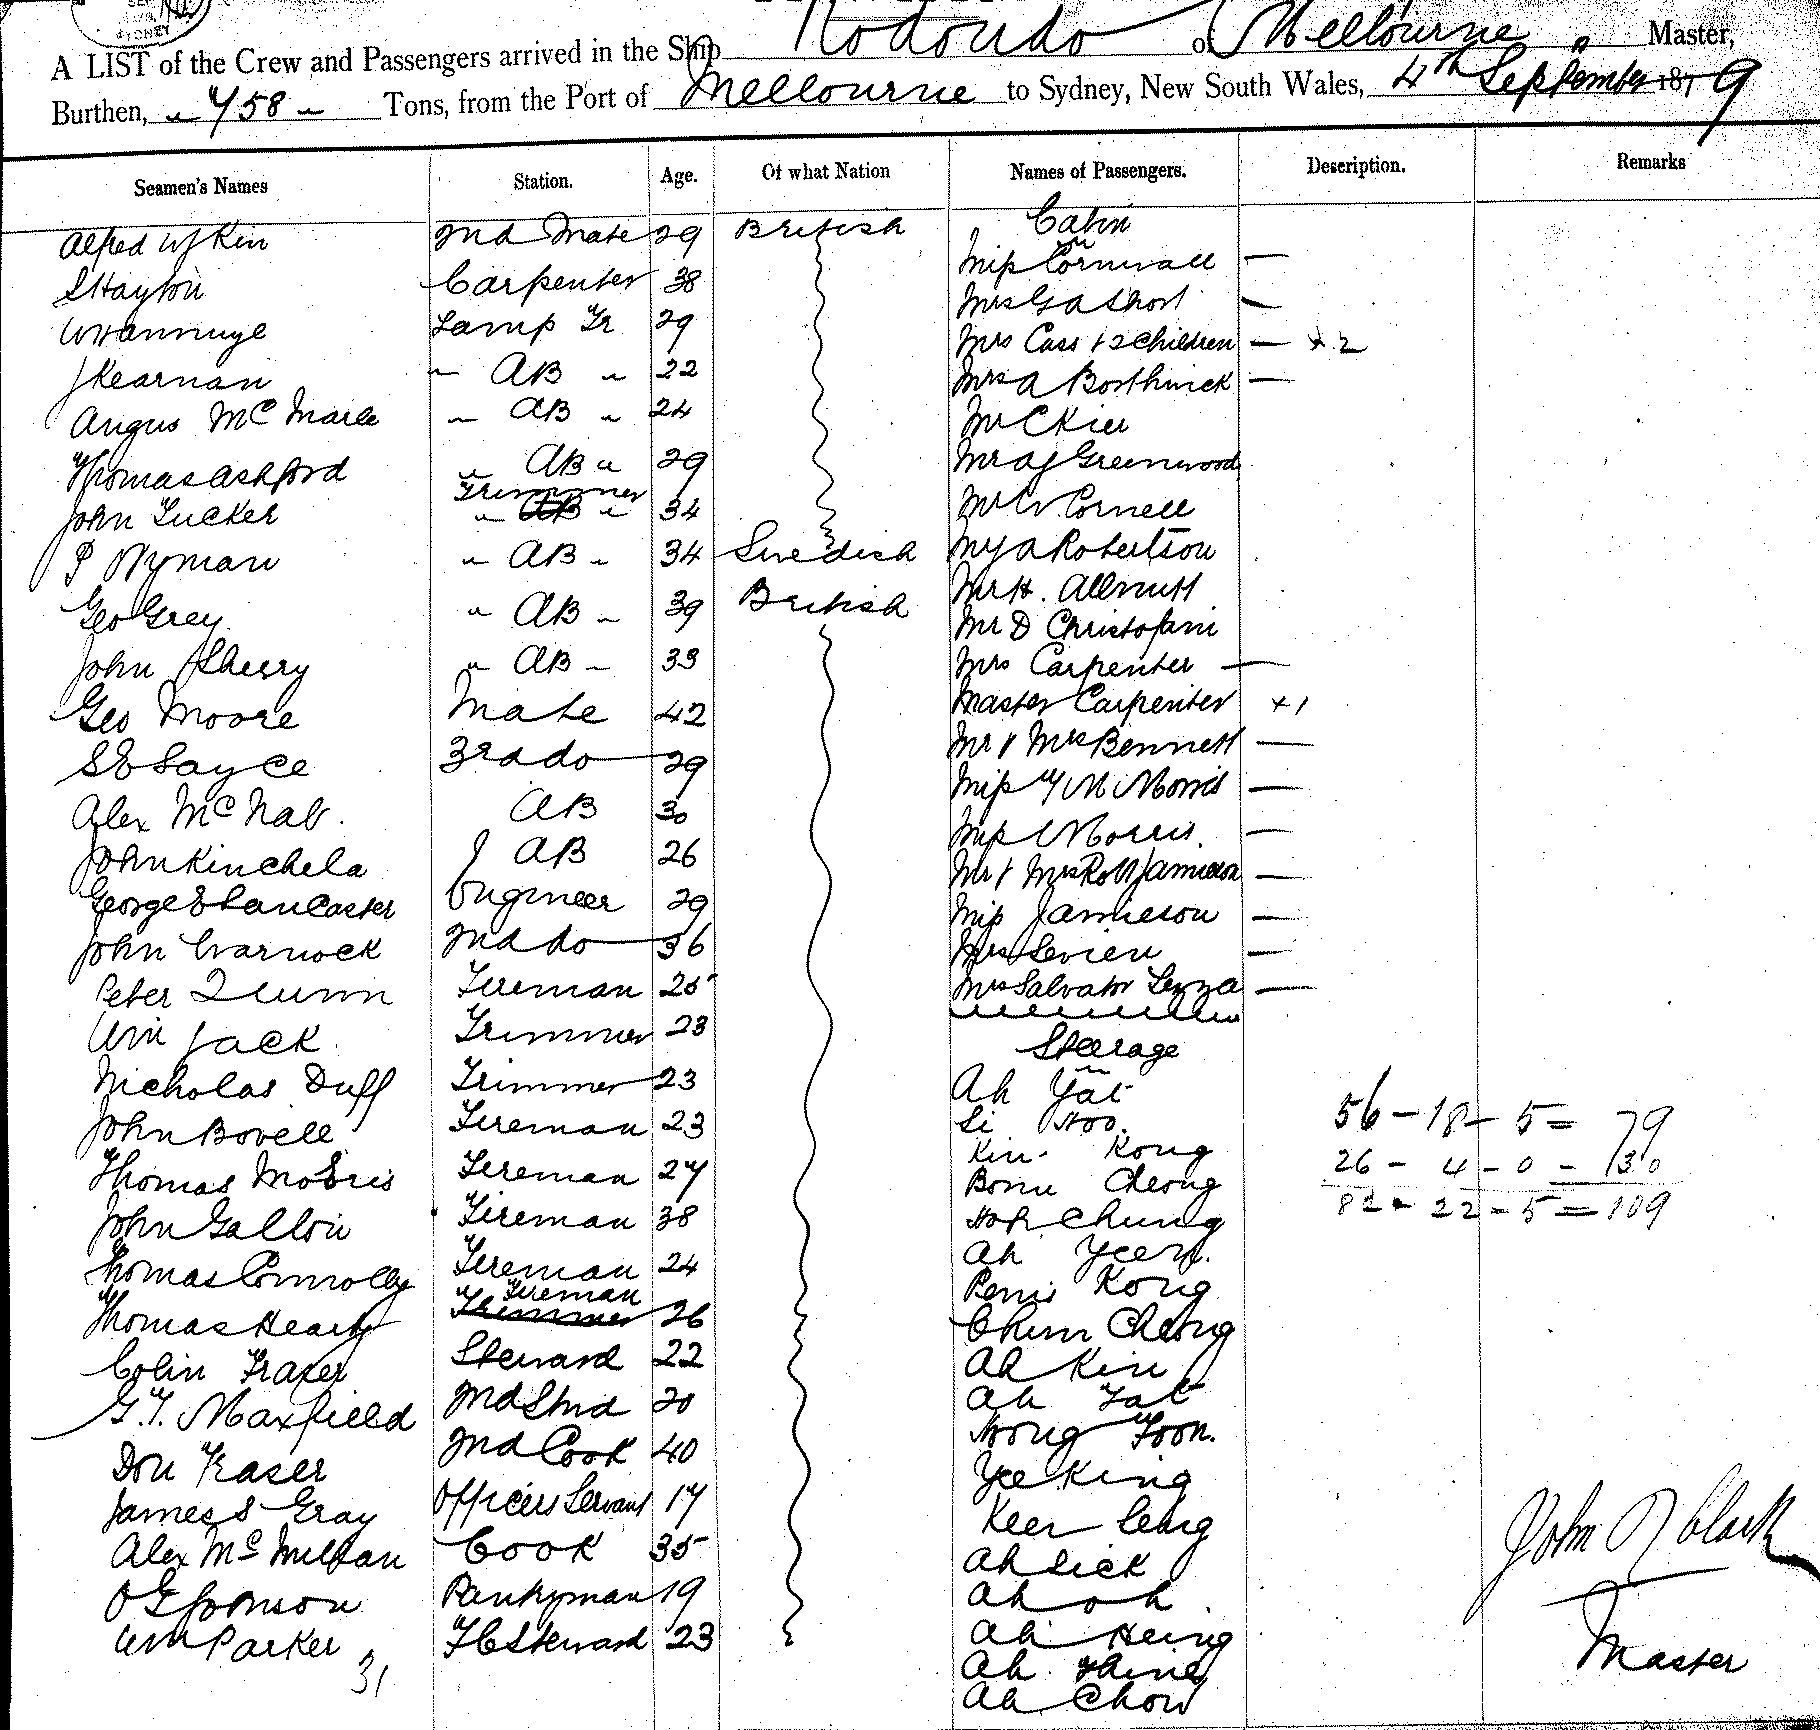 SYDNEY
A LIST of the Crew and Passengers arrived in the Ship Rodondo of Melbourne Master,
Burthen, 758 Tons, from the Port of Melbourne to Sydney, New South Wales, 4th September 1879
Seamen's Names Station. Age. Of what Nation Names of Passengers. Description. Remarks
Cabin
Alfred 2nd Mate 29 British Miss Cornwall —
S Hayton Carpenter 38 Mrs —
Lamp Tr 29 Mrs Cass + 2 Children — + 2
J Kearnan " AB " 22 Mrs A Borthwick —
Angus Mc " AB " 24 Mr C Kier
Thomas Ashford " AB " 29 Mr Greenwood
John Tucker Trimmer " AB " 34 Mr W. Cornell
P Nyman " AB " 34 Swedish A Robertson
Geo Grey. " AB " 39 British Mr H. Allnutt
Mr D Christofani
John Sherry " AB " 33 Mrs Carpenter —
Geo Moore Mate 42 Master Carpenter + 1
S E Sayce 3rd do 29 Mr & Mrs Bennett —
Alex Mc Nab. AB 30 Miss M Morris —
John Kinchela AB 26 Miss Morris. —
George E Lancaster Engineer 29 Mr & Mrs Robt Jamieson —
John Warnock 2nd do 36 Miss Jamieson —
Peter Quinn Fireman 25 Mrs Levien —
Mrs Salvator —
Wm Jack. Trimmer 23 Steerage
Nicholas Duff Trimmer 23 Ah Yat
John Bovell Fireman 23 Li Hoo. 56 - 18 - 5 = 79
Kin Kong
Thomas Fireman 27 Cheong 26 - 4 - 0 - 30
John Gallon Fireman 38 Hop Chung 82 - 22 - 5 = 109
Thomas Connolly Fireman 24 Ah
Kong
Thomas Hearty Fireman Trimmer 26 Chum Cheong
Colin Fraser Steward 22 Ah Kin
G. T. Maxfield 2nd Stwd 20 Ah Fat
Don Fraser 2nd Cook 40 Hong Foon.
Yee King
James S Gray Officers Servant 17 Keer
Alex Mc Millan Cook 35 Ah Sick
O E Jonson Pantryman 19 Ah Oh.
Wm Parker F C Steward 23 Ah Heing
31
Ah
Ah Chow
John Clark
Master